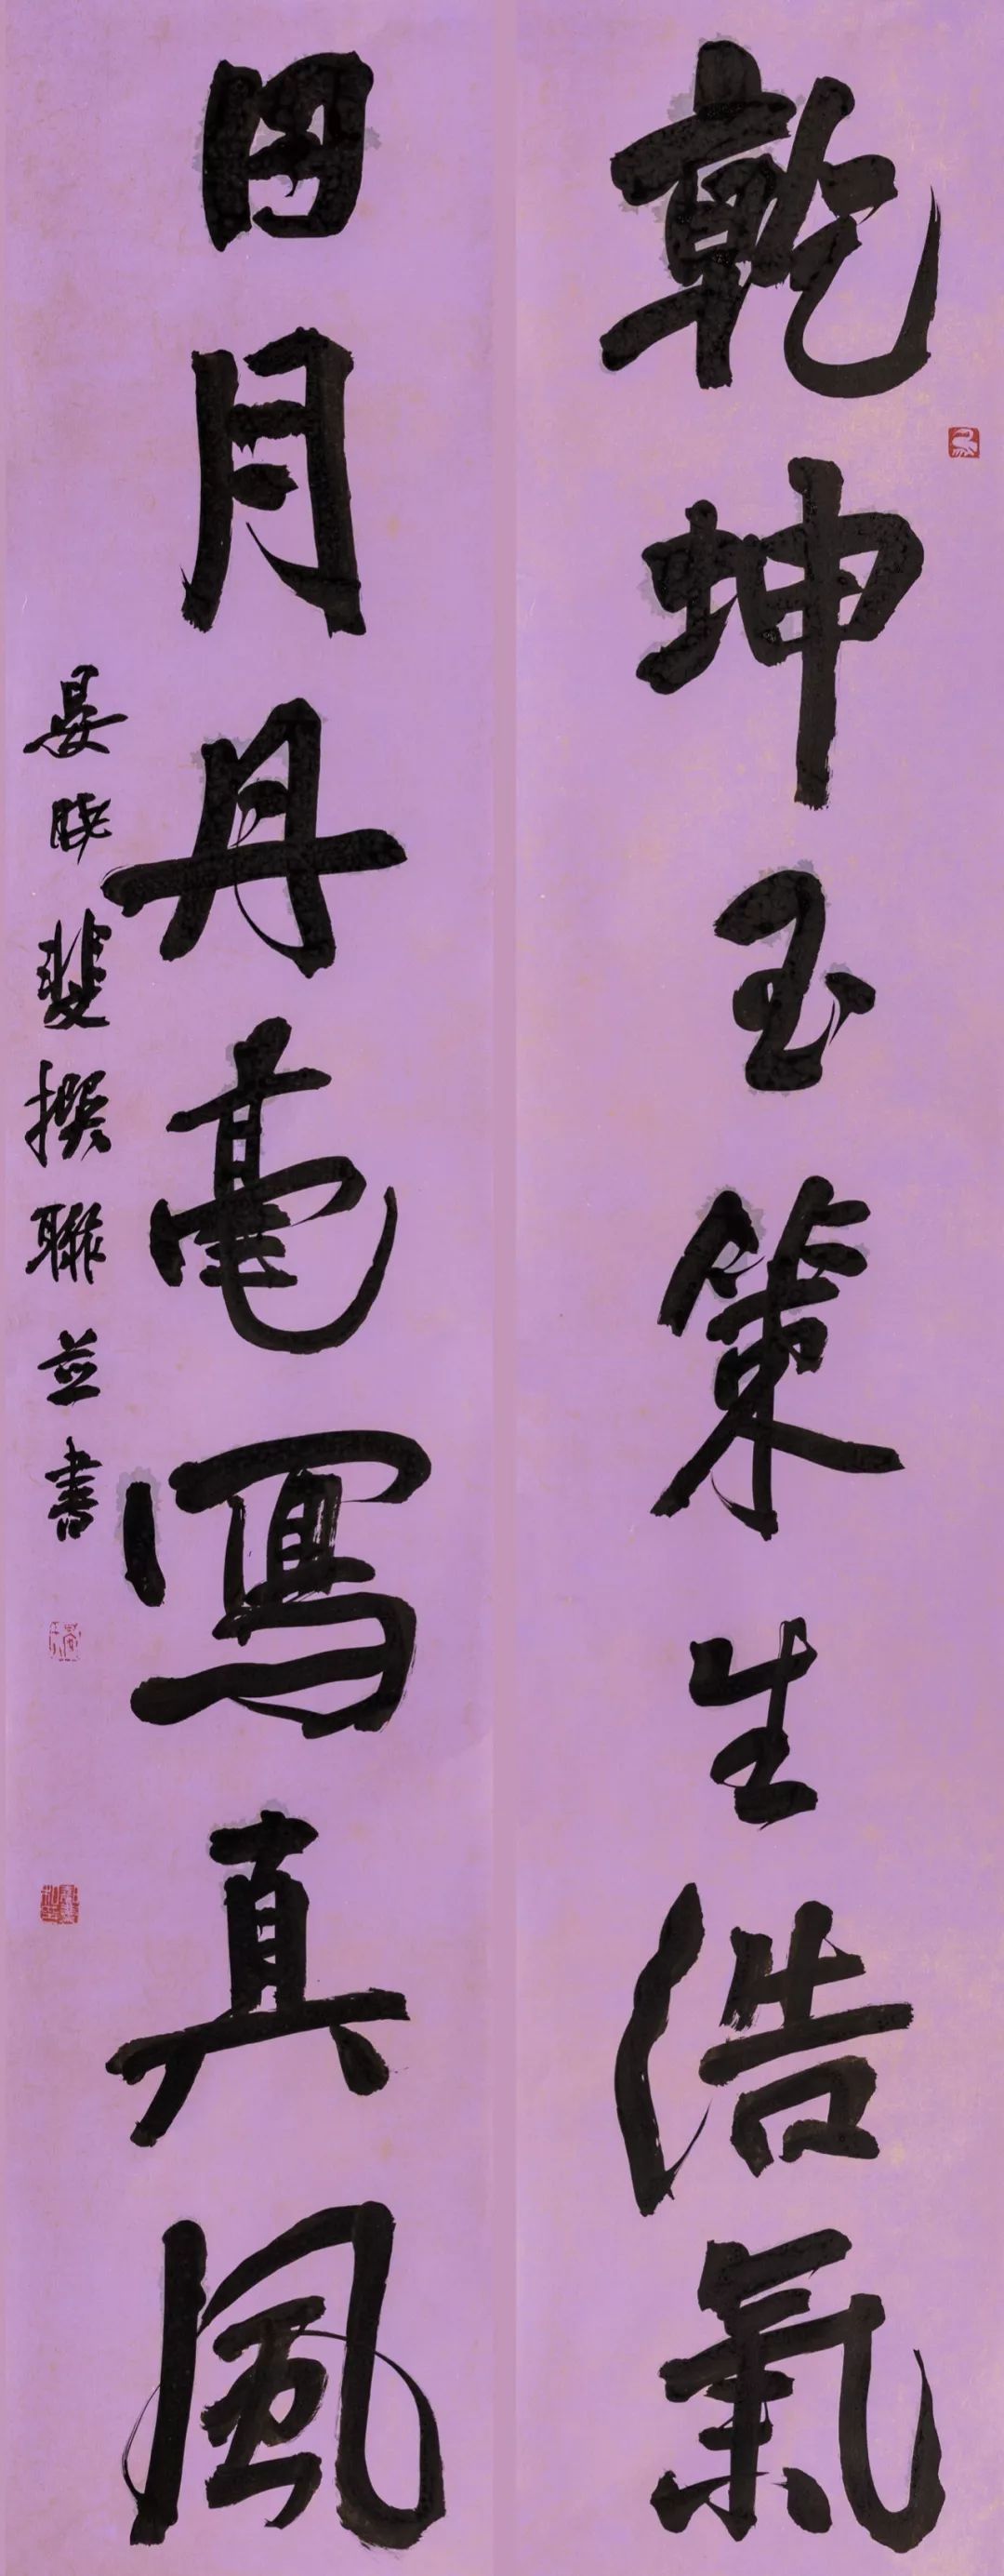 乾坤玉策生浩氣
日月丹毫寫真風
晏曉斐撰聯並書